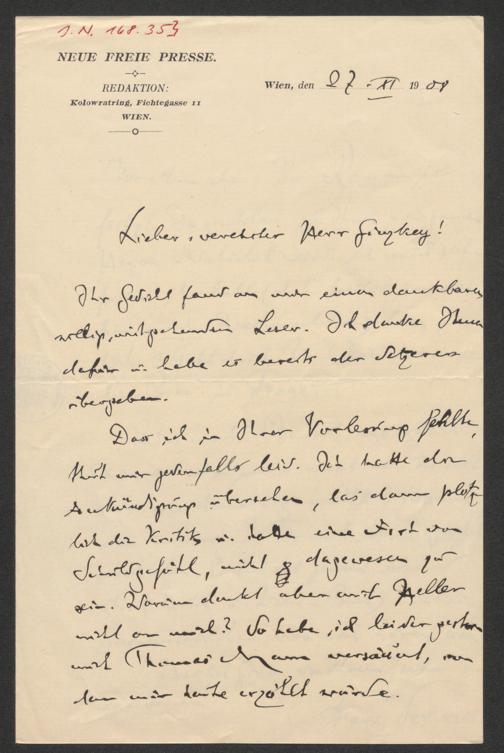 J. N. 168.353
NEUE FREIE PRESSE.
REDAKTION:
Kolowratring, Fichtegasse 11
WIEN.
Wien, den 27. XI 1908
Lieber, verehrter Herr Ginzkey!
Ihr Gedicht fand an mir einen dankbaren
willig, mitgehenden Leser. Ich danke Ihnen
dafür u. habe es bereits den Setzern
übergeben.
Dass ich in Ihrer Vorlesung fehlte,
thut mir jedenfalls leid. Ich hatte die
Ankündigung übersehen, las dann plötz-
lich die Kritik u. hatte eine Art von
Schuldgefühl, nicht dagewesen zu
sein. Warum denkt aber auch Heller
nicht an mich? So habe ich leider gestern
auch Thomas Mann versäumt, von
dem mir heute erzählt wurde.